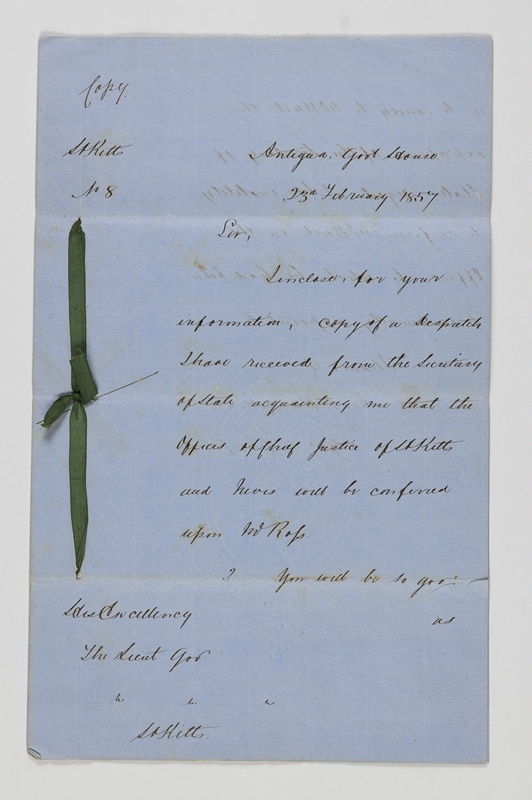 Copy.
St Kitts
Antigua. Govt House
No 8
23rd February 1857
Sir,
I inclose, for your
information, copy of a Despatch
I have received from the Secretary
of State acquainting me that the
Offices of Chief Justice of St Kitts
and Nevis will be conferred
upon Mr Ross
2 You will be so good
as
His Excellency
The Lieut Govr
St Kitts.